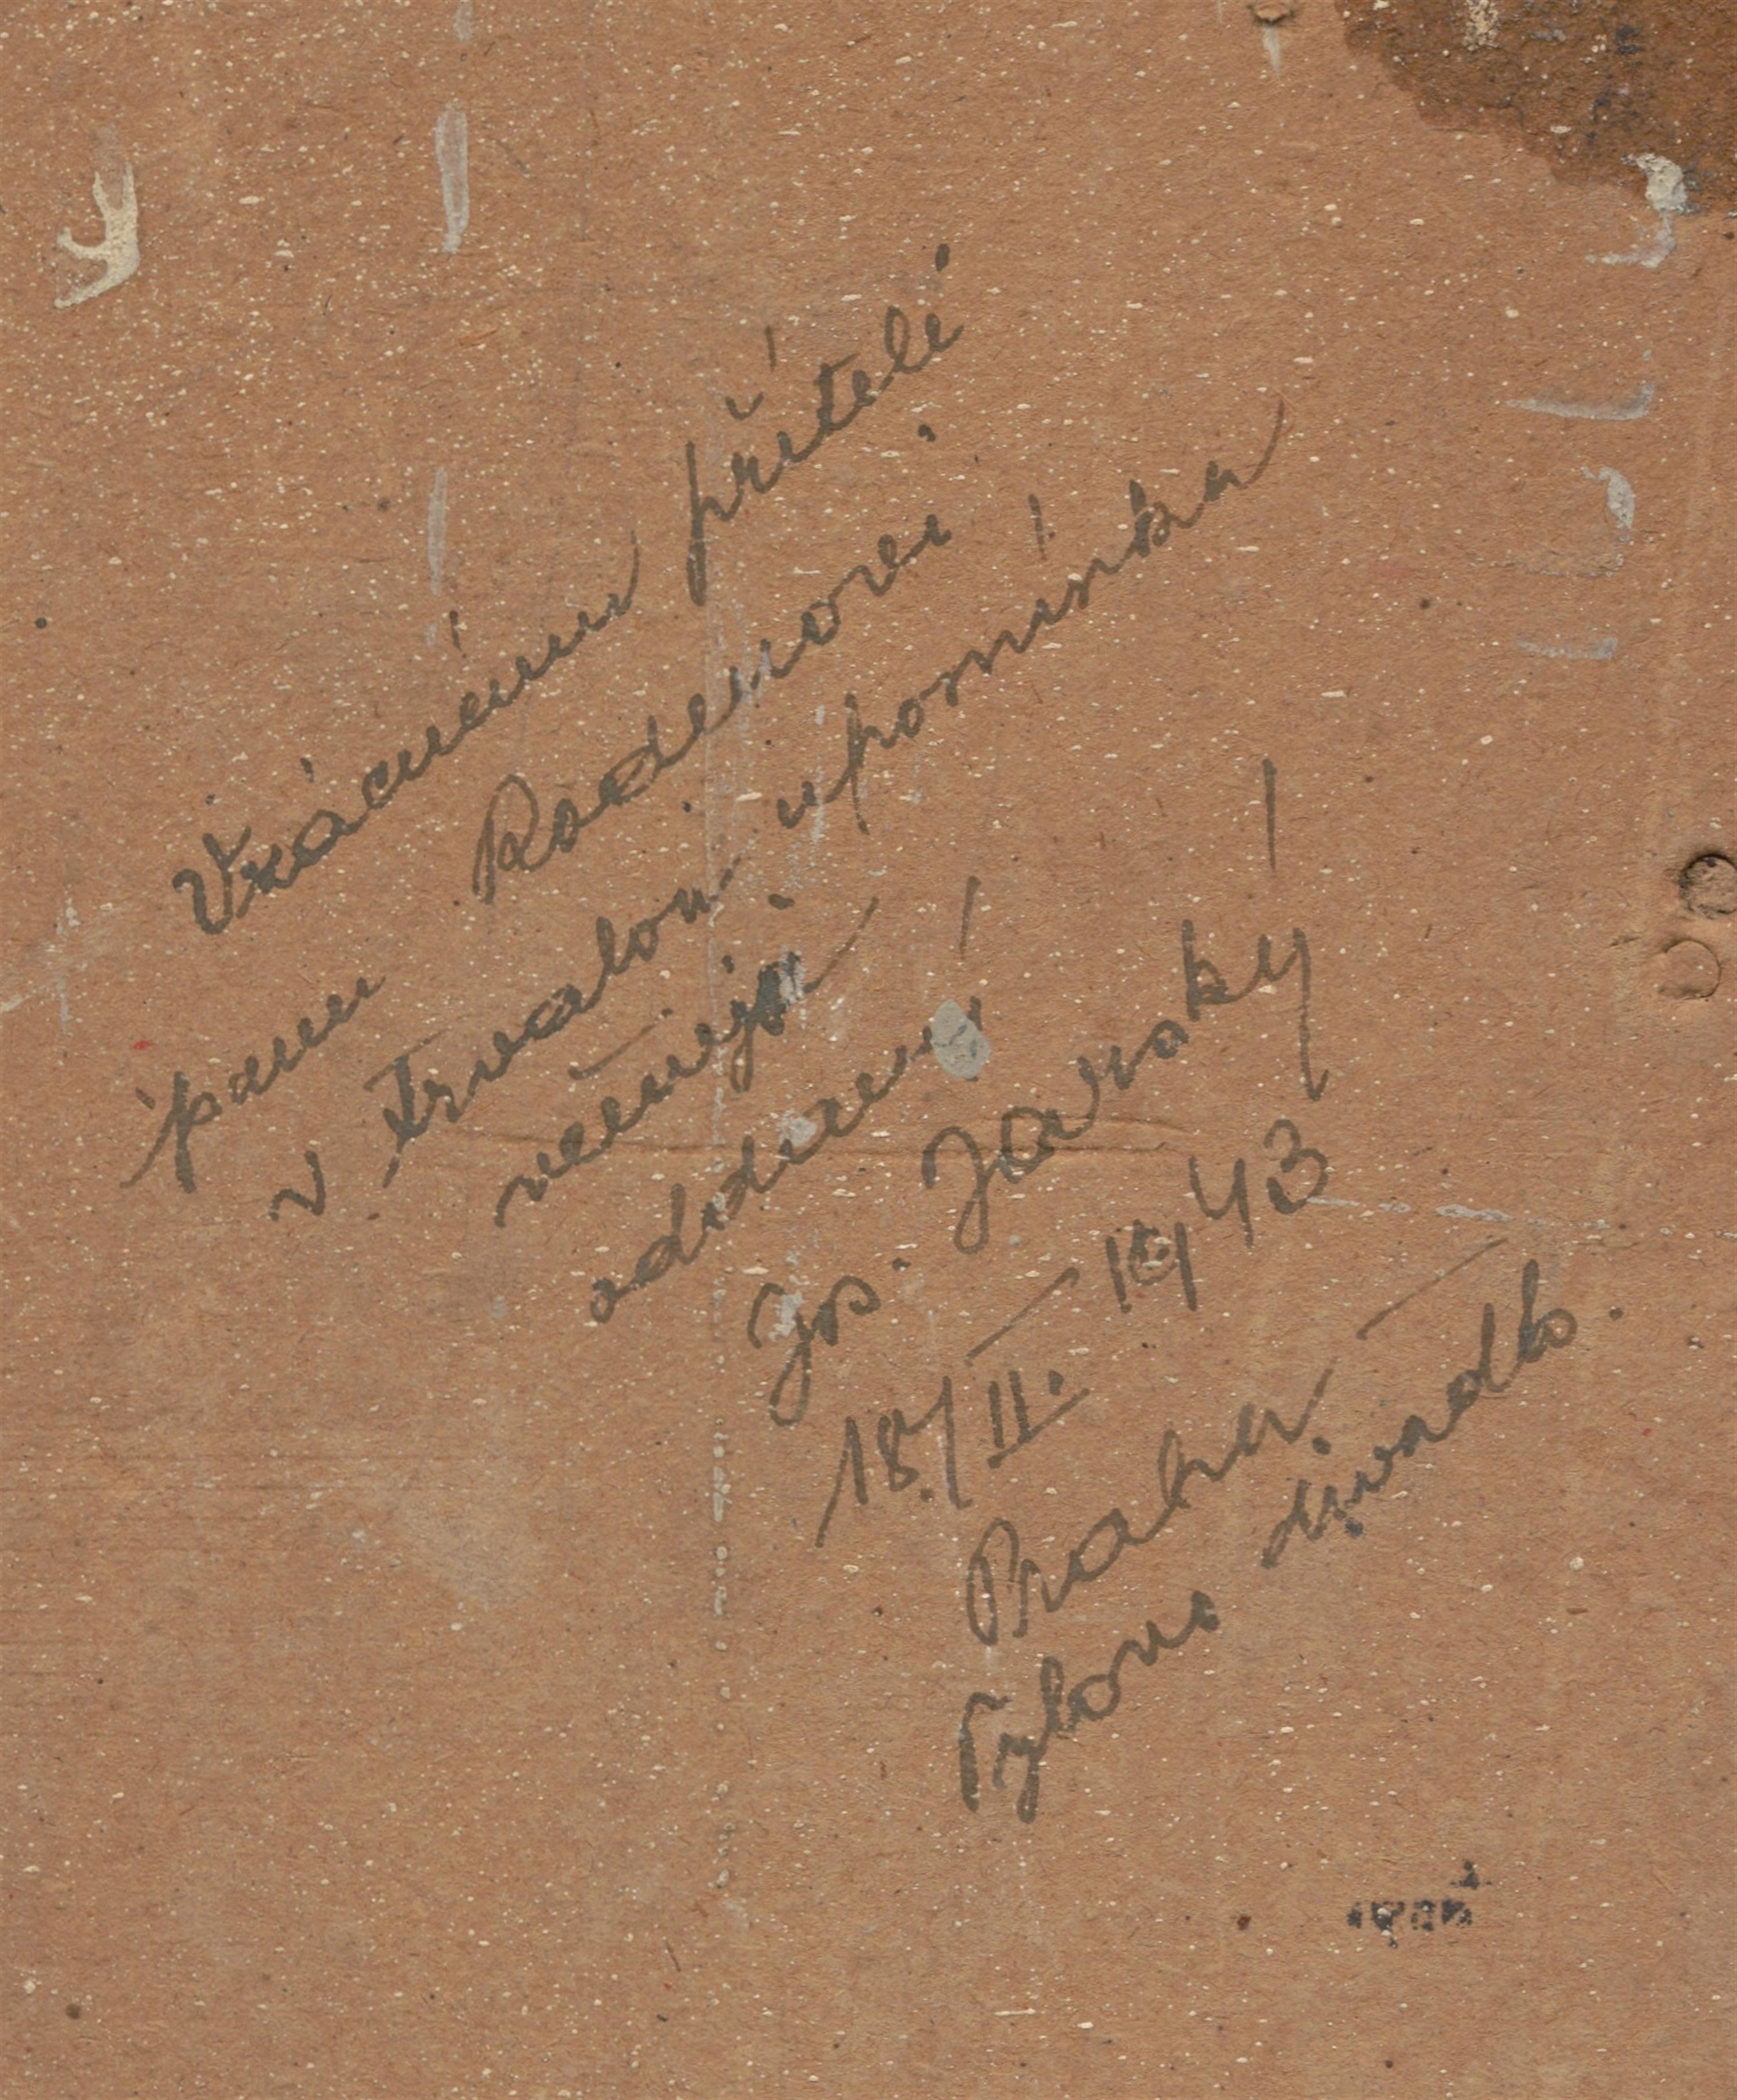 Vzácnému příteli
panu Rademovi
v trvalou upomínku
věnuje
oddaný
Jos. Járský
18/II. 1943
Praha
Tylovo divadlo.